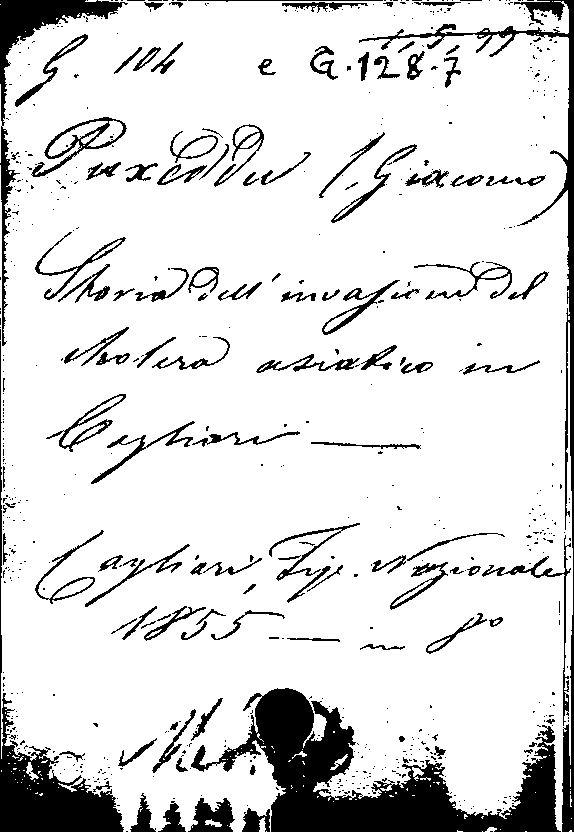 1, 5, 99
G. 104 e G. 128. 7
Puxeddu (Giacomo)
Storia dell' invasione del
cholera asiatico in
Cagliari —
Cagliari, Tip. Nazionale
1855 — in 8º